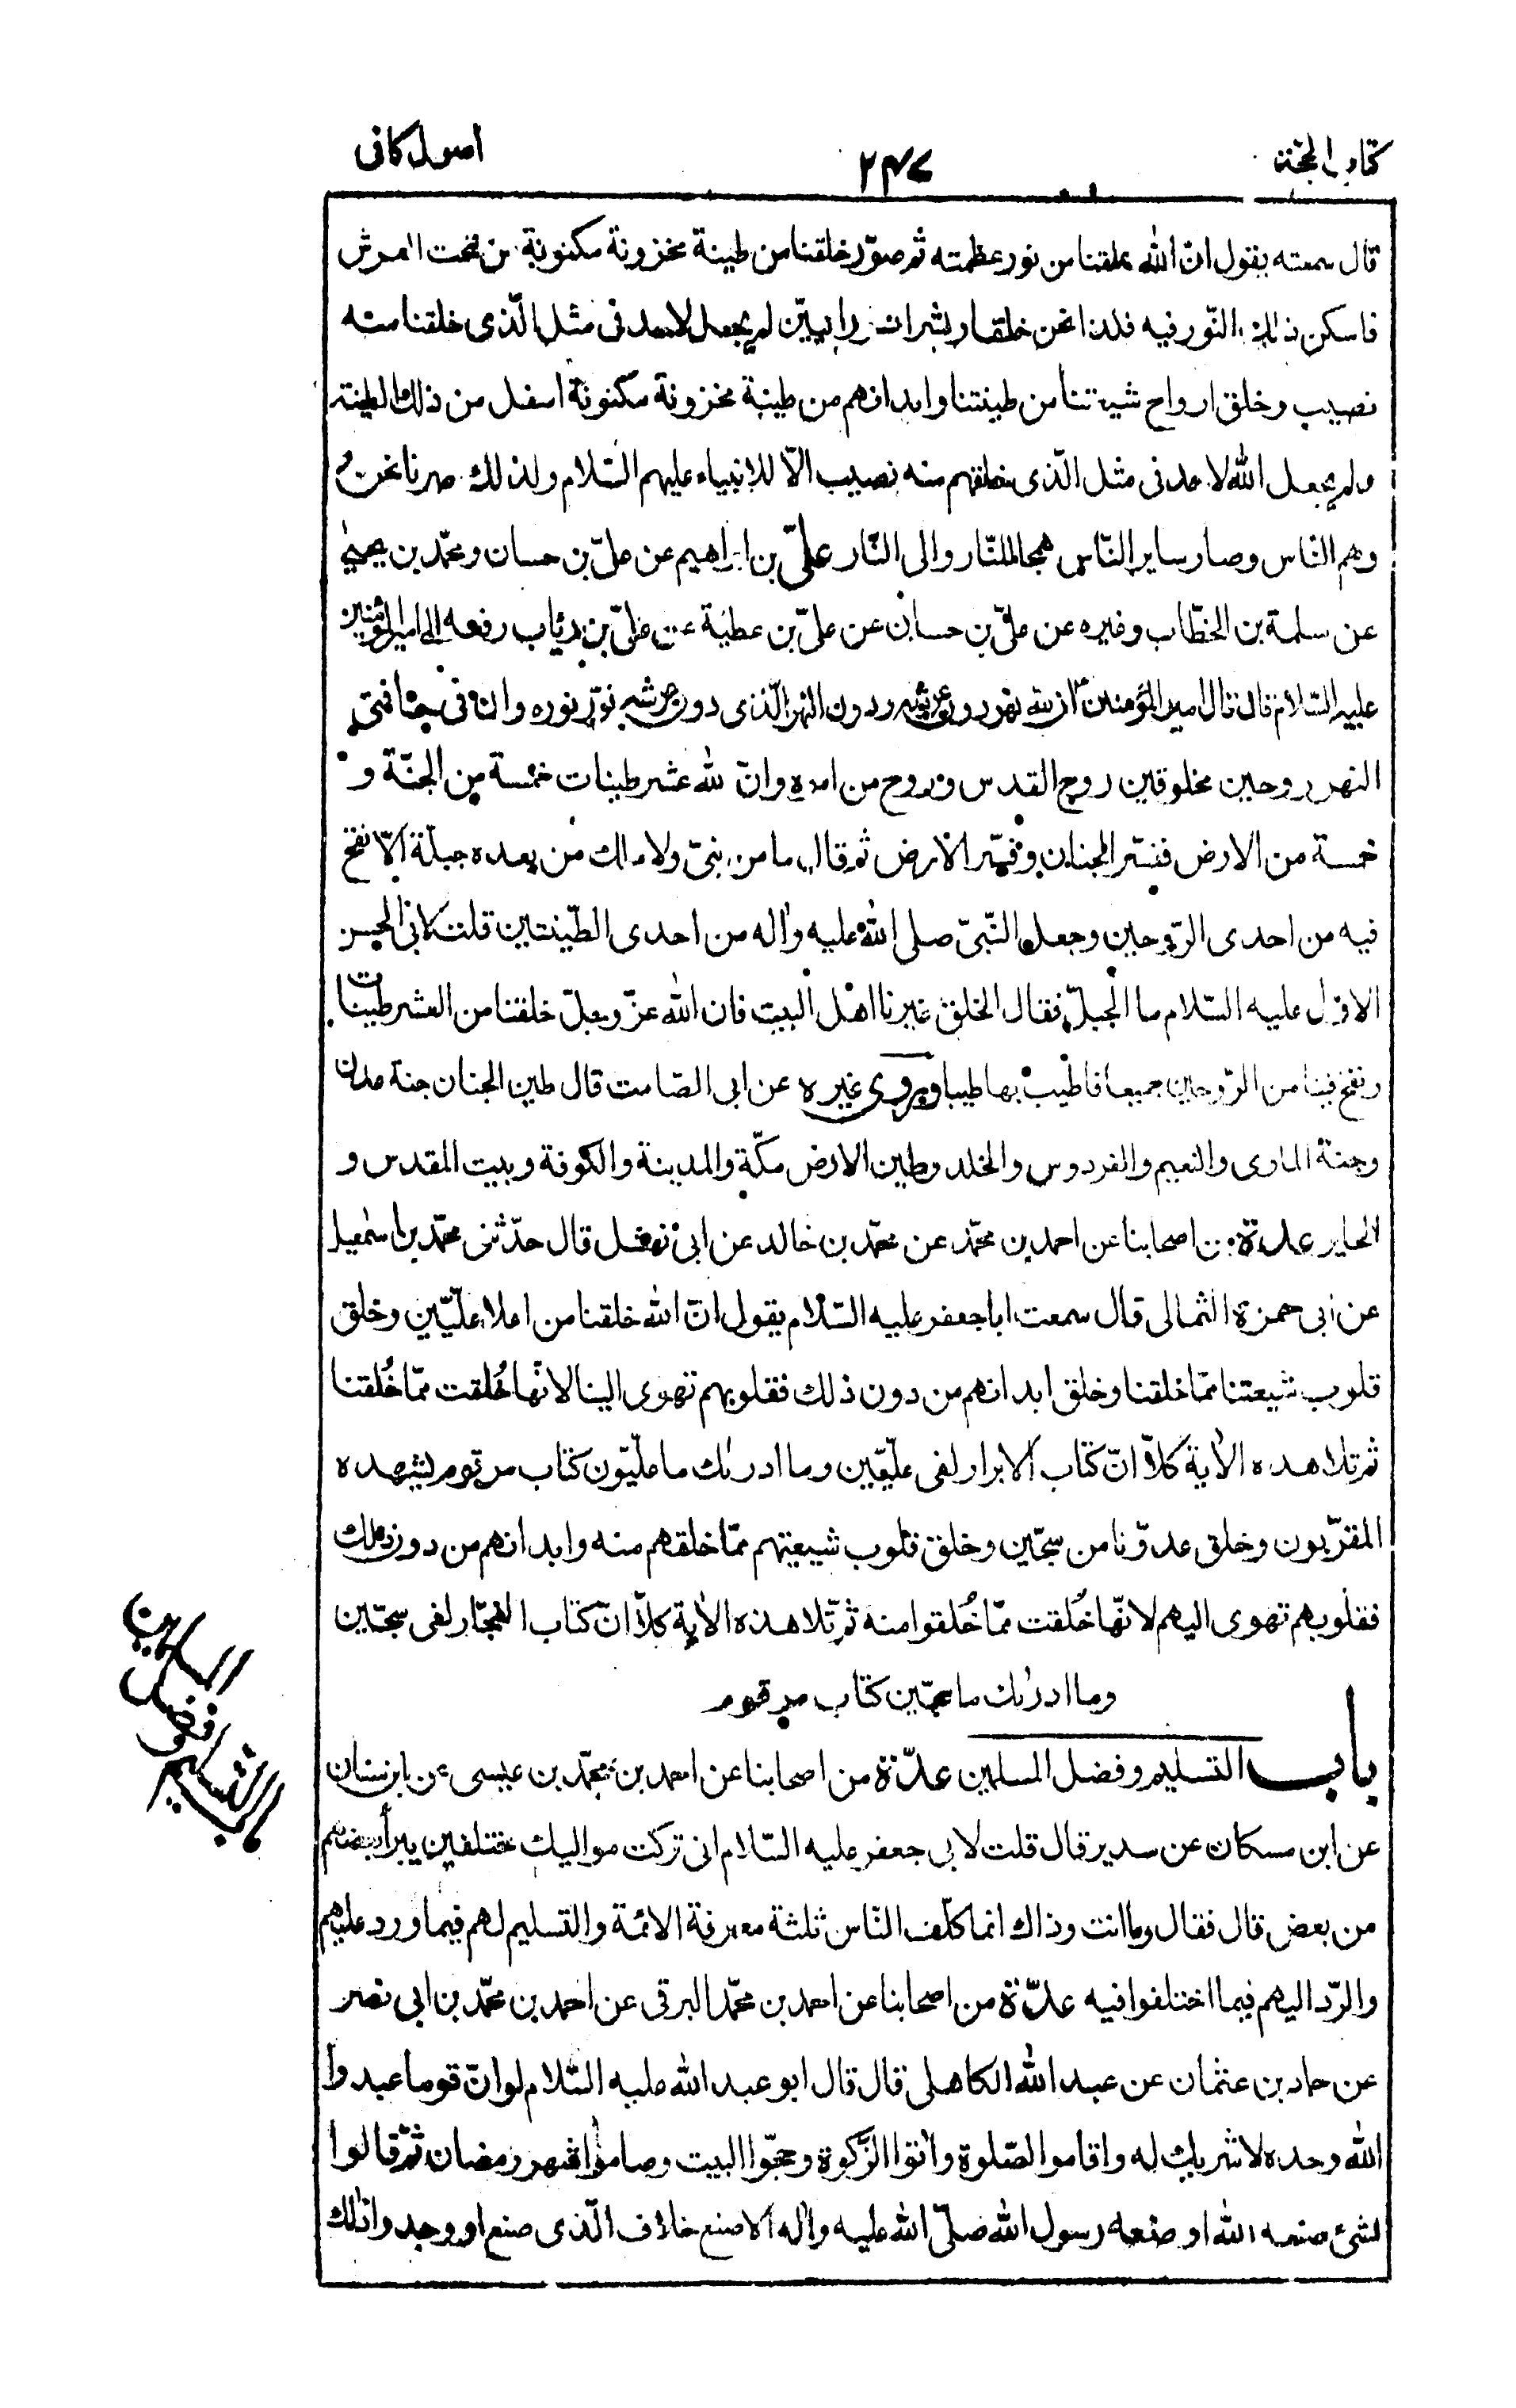 كتاب الحجة ٢٤٧ اصول كافى
قال سمعته يقول ان الله خلقنا من نور عظمته ثم صوّر خلقنا من طينة مخزونة مكنونة من تحت العرش
فاسكن ذلك النّور فيه فكنا نحن خلقا وبشرا نورانيّين لم يجعل لاحد فى مثل الّذى خلقنا منه
نصيب وخلق ارواح شيعتنا من طينتنا وابدانهم من طينة مخزونة مكنونة اسفل من ذلك الطينة
ولم يجعل الله لاحد فى مثل الّذى خلقهم منه نصيب الّا للانبياء عليهم السّلام ولذلك صرنا نحن
وهم النّاس وصار ساير النّاس همجا للنّار والى النّار علىّ بن ابراهيم عن علىّ بن حسان ومحمّد بن يحيىٰ
عن سلمة بن الخطّاب وغيره عن علىّ بن حسان عن علىّ بن عطيّة عن علىّ بن رئاب رفعه الى امير المؤمنين
عليه السّلام قال قال امير المؤمنين ان لله نهر دون عرشه ودون النهر الّذى دون عرشه نوّر نوره وان فى حافتى
النهر روحين مخلوقين روح القدس وروح من امره وانّ لله عشر طينات خمسة من الجنّة و
خمسة من الارض ففسّر الجنان وفسّر الارض ثم قال ما من نبىّ ولا ملك من بعده جبلّه الّا نفخ
فيه من احدى الرّوحين وجعل النّبىّ صلى الله عليه واٰله من احدى الطّينتين قلت لابى الحسن
الاوّل عليه السّلام ما الجبلّ فقال الخلق غيرنا اهل البيت فان الله عزّ وجلّ خلقنا من العشر طينات
ونفخ فينا من الرّوحين جميعا فاطيب بها طيبا وروى غيره عن ابى الصّامت قال طين الجنان جنة عدن
وجنة الماوى والنعيم والفردوس والخلد وطين الارض مكّة والمدينة والكوفة وبيت المقدس و
الحاير عدة من اصحابنا عن احمد بن محمّد عن محمّد بن خالد عن ابى نهشل قال حدّثنى محمّد بن اسمٰعيل
عن ابى حمزة الثمالى قال سمعت ابا جعفر عليه السّلام يقول انّ الله خلقنا من اعلا علّيّين وخلق
قلوب شيعتنا ممّا خلقنا وخلق ابدانهم من دون ذلك فقلوبهم تهوى الينا لانّها خُلقت ممّا خُلقنا
ثم تلا هذه الاٰية كلاّ انّ كتاب الابرار لفى علّيّين وما ادرىٰك ما علّيّون كتاب مرقوم يشهده
المقرّبون وخلق عدوّنا من سجّين وخلق قلوب شيعتهم ممّا خلقهم منه وابدانهم من دون ذلك
فقلوبهم تهوى اليهم لانّها خُلقت ممّا خُلقوا منه ثم تلا هذه الاٰية كلاّ انّ كتاب الفجّار لفى سجّين
وما ادرٰىك ما سجّين كتاب مرقوم
باب التسليم وفضل المسلمين عدّة من اصحابنا عن احمد بن محمّد بن عيسى عن ابن سنان
عن ابن مسكان عن سدير قال قلت لابى جعفر عليه السّلام انى تركت مواليك مختلفين يبرأ بعضهم
من بعض قال فقال وما انت وذاك انما كلّف النّاس ثلثة معرفة الائمّة والتسليم لهم فيما ورد عليهم
والرّد اليهم فيما اختلفوا فيه عدّة من اصحابنا عن احمد بن محمّد البرقى عن احمد بن محمّد بن ابى نصر
عن حماد بن عثمان عن عبد الله الكاهلى قال قال ابو عبد الله عليه السّلام لو انّ قوما عبدوا
الله وحده لا شريك له واقاموا الصّلوة واٰتوا الزّكوة وحجّوا البيت وصاموا شهر رمضان ثمّ قالوا
لشئ صنعه الله او صنعه رسول الله صلّى الله عليه واٰله الا صنع خلاف الّذى صنع او وجدوا ذلك
باب التسليم وفضل المسلمين